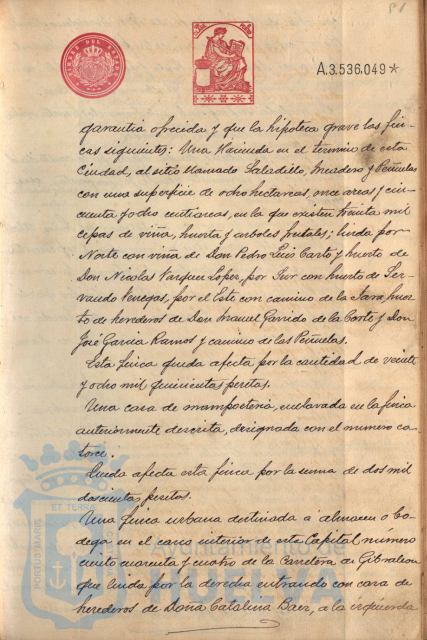 A.3.536.049*
garantia ofrecida y que la hipoteca grave las fin-
cas siguientes: Una Hacienda en el termino de esta
Ciudad, al sitio llamado Saladillo, Meadero y Peñuelas
con una superficie de ocho hectareas, once areas y cin-
cuenta y ocho centiareas, en la que existen treinta mil
cepas de viña, huerta y arboles frutales; linda por
Norte con viña de Don Pedro Luis Carto y huerto de
Don Nicolas Vazquez Lopez, por Sur con huerto de Ser-
vando Venegas, por el Este con camino de la
to de herederos de Don Manuel Garrido de la Corte y Don
José Garcia Ramos y camino de las Peñuelas.
Esta finca queda afecta por la cantidad de veinte
y ocho mil quinientas pesetas.
Una casa de mamposteria, enclavada en la finca
anteriormente descrita, designada con el numero ca-
torce.
Queda afecta esta finca por la suma de dos mil
doscientas pesetas.
Una finca urbana destinada á almacen o bo-
dega en el casco interior de esta Capital, número
ciento cuarenta y cuatro de la Carretera de Gibraleon
que linda por la derecha entrando con casa de
herederos de Doña Catalina Baez, a la izquierda
PORTUS MARIS ET TERRAE
Ayuntamiento de
HUELVA